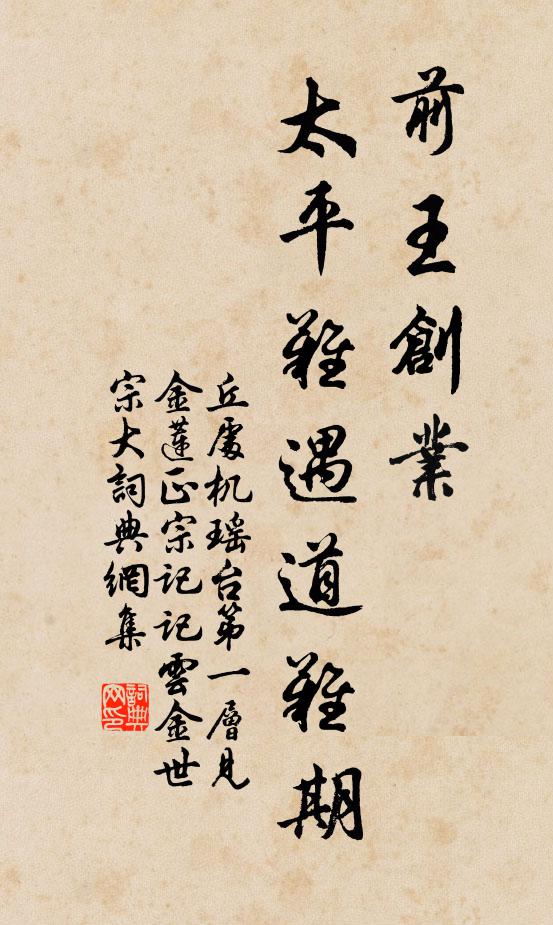 前王創業
太平難遇道難期
丘處机瑶台第一層見
金蓮正宗記記雲金世
宗大詞典網集
詞典网印